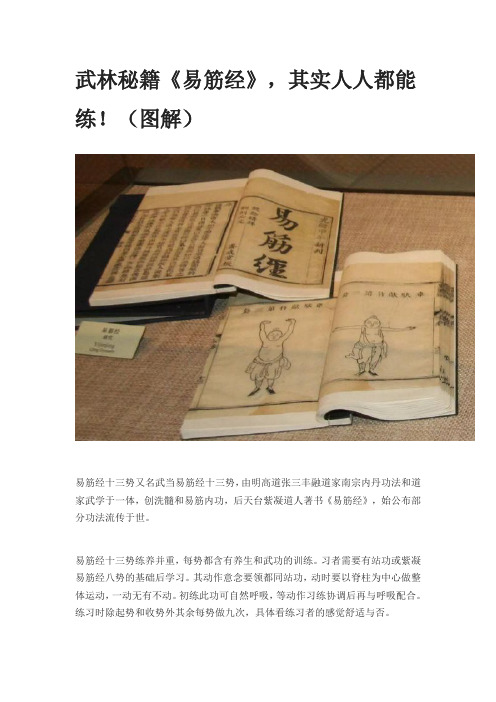 武林秘籍《易筋经》，其实人人都能
练！（图解）
易筋經
易筋经十三势又名武当易筋经十三势，由明高道张三丰融道家南宗内丹功法和道
家武学于一体，创洗髓和易筋内功，后天台紫凝道人著书《易筋经》，始公布部
分功法流传于世。
易筋经十三势练养并重，每势都含有养生和武功的训练。习者需要有站功或紫凝
易筋经八势的基础后学习。其动作意念要领都同站功，动时要以脊柱为中心做整
体运动，一动无有不动。初练此功可自然呼吸，等动作习练协调后再与呼吸配合。
练习时除起势和收势外其余每势做九次，具体看练习者的感觉舒适与否。